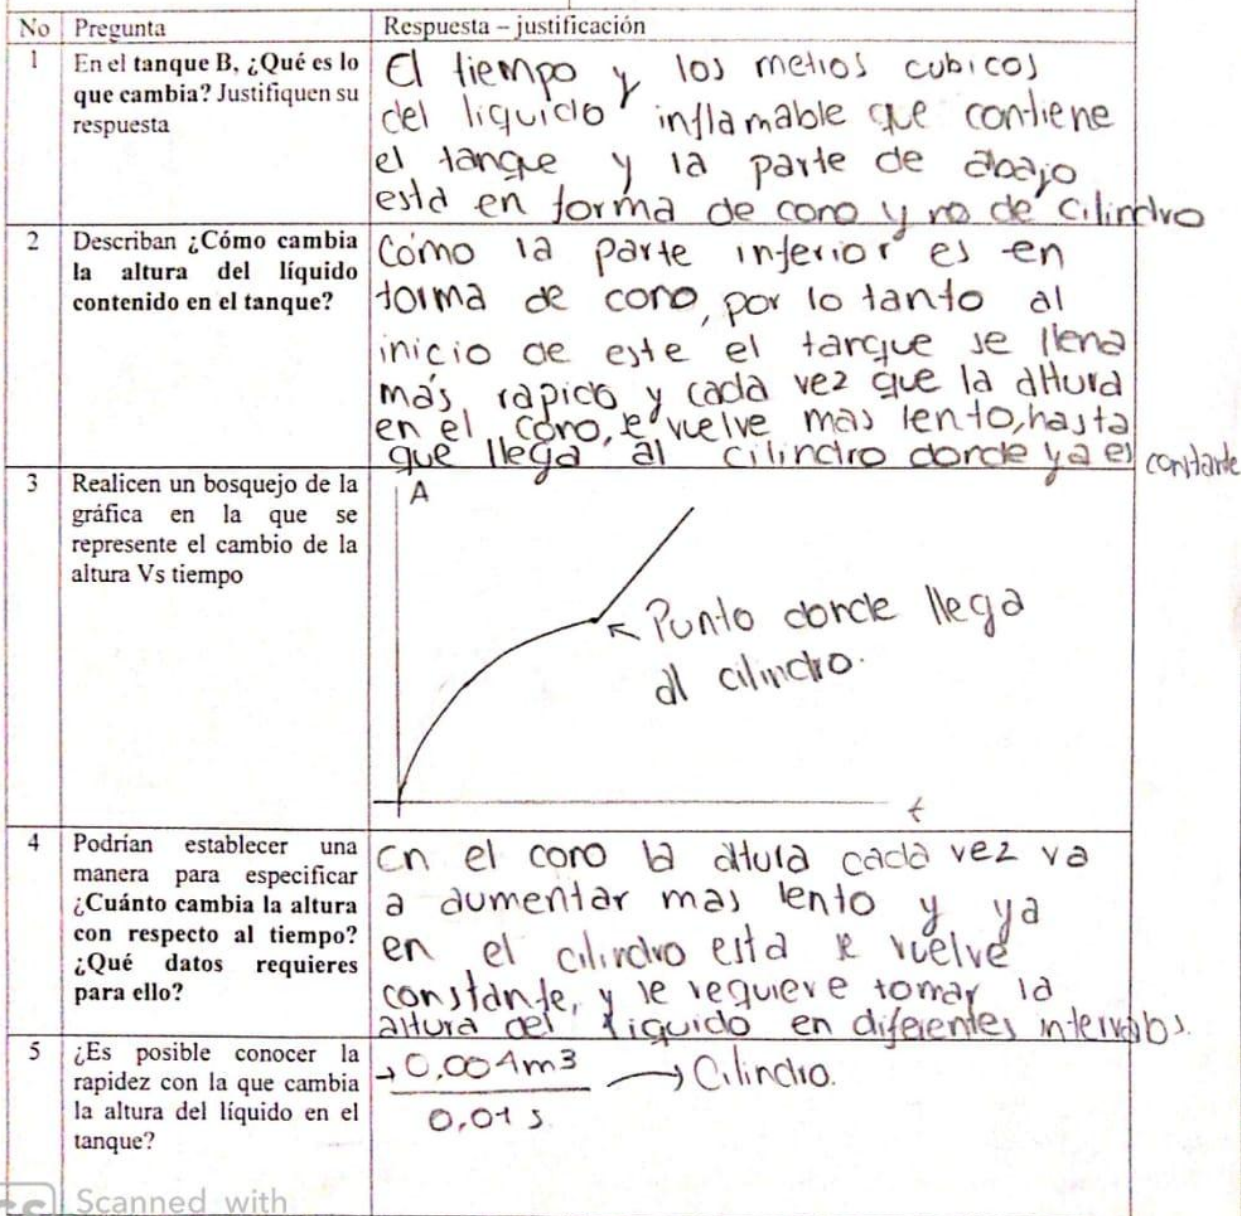 No Pregunta Respuesta – justificación
1 En el tanque B, ¿Qué es lo
que cambia? Justifiquen su
respuesta
El tiempo y los metros cubicos
del liquido inflamable que contiene
el tanque y la parte de abajo
está en forma de cono y no de cilindro
2 Describan ¿Cómo cambia
la altura del líquido
contenido en el tanque?
Como la parte inferior es en
forma de cono, por lo tanto al
inicio de este el tanque se llena
más rapido y cada vez que la altura
en el cono, se vuelve mas lento, hasta
que llega al cilindro donde ya es constante
3 Realicen un bosquejo de la
gráfica en la que se
represente el cambio de la
altura Vs tiempo
A
Punto donde llega
al cilindro.
t
4 Podrían establecer una
manera para especificar
¿Cuánto cambia la altura
con respecto al tiempo?
¿Qué datos requieres
para ello?
En el cono la altura cada vez va
a aumentar mas lento y ya
en el cilindro esta se vuelve
constante, y se requiere tomar la
altura del liquido en diferentes intervalos.
5 ¿Es posible conocer la
rapidez con la que cambia
la altura del líquido en el
tanque?
→ 0.004m3 → Cilindro.
0.01 s
Scanned with